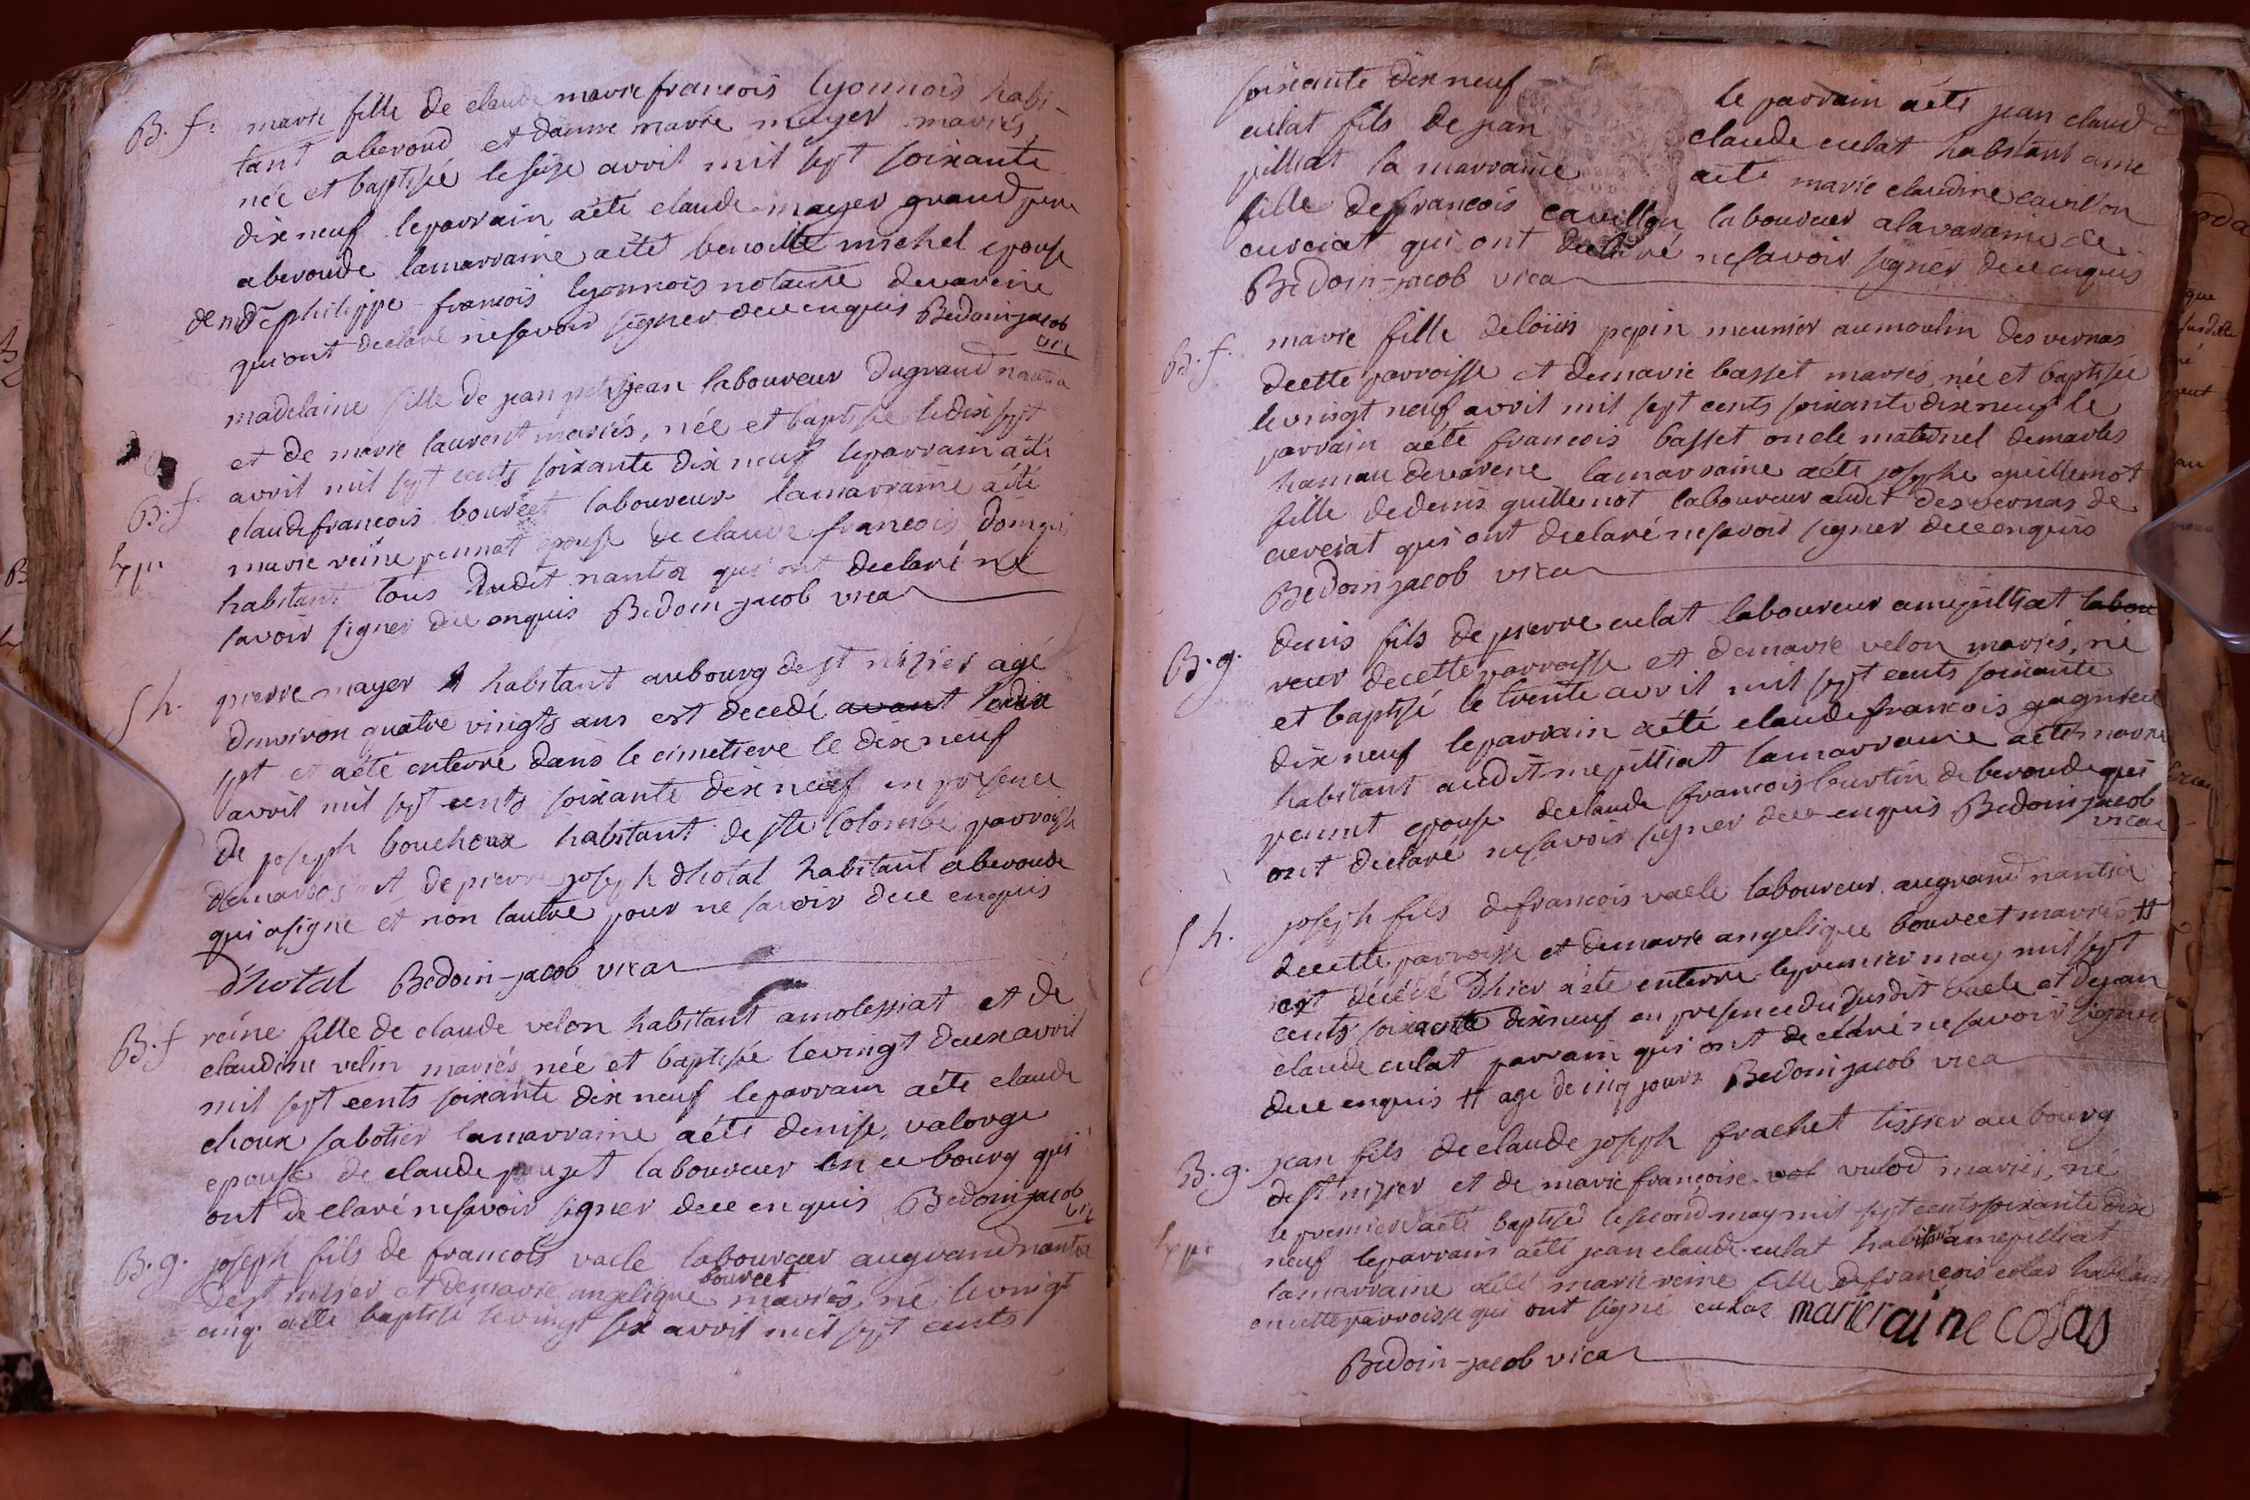 B. f. marie fille de claude marie francois lyonnois habi-
tant a beroud et danne marie mayer mariés,
née et baptisée le seize avril mil sept soixante
dix neuf le parrain aété claude mayer grand pere
a beroude lamarraine aété benoitte michel epouse
de mre philippe francois lyonnois notaire devarene
qui ont declaré nesavoir signer dece enquis Bedoin-jacob
vic
B. f. madelaine fille de jean petitjean laboureur dugrand nantia
et de marie laurent mariés, née et baptisée ledix sept
avril mil sept cents soixante dix neuf leparrain aété
claude francois bouveet laboureur lamarraine aété
marie reine pennat epouse de claude francois
habitant tous dudit nantia qui ont declaré ne
savoir signer dece enquis Bedoin-jacob vica
s h. pierre mayer habitant aubourg de st nizier agé
denviron quatre vingts ans est decedé avant le dix
sept et aété enterré dans le cimetiere le dix neuf
avril mil sept cents soixante dix neuf en presence
de joseph bouchoux habitant de ste Colombe parroisse
et de pierre joseph dhotal habitant a beroude
qui a signé et non lautre pour ne savoir dece enquis
d'hotal Bedoin-jacob vica
B. f reine fille de claude velon habitant amolessiat et de
claudine velin mariés née et baptisée levingt deux avril
mil sept cents soixante dix neuf leparrain aété claude
choux sabotier lamarraine aété denise valorge
epouse de claude pouzet laboureur en ce bourg qui
ont declaré nesavoir signer dece enquis Bedoin-jacob
vic
B. g. joseph fils de francois vacle laboureur augrand nantia
de st nizier et demarie angelique bouveet mariés, né levingt
cinq aété baptisé levingt six avril mil sept cents
soixante dix neuf le parrain aété jean claude
culat fils de jean claude culat habitant ame
pilliat la marraine aété marie claudine cavillon
fille de francois cavillon laboureur alavaraine de
curciat qui ont declaré nesavoir signer dece enquis
Bedoin-jacob vica
B. f. marie fille de loüis pepin meunier aumoulin des vernas
decette parroisse et demarie basset mariés, née et baptisée
levingt neuf avril mil sept cents soixante dix neuf le
parrain aété francois basset oncle maternel demarles
hameau devarene lamarraine aété josephe guillemot
fille dedenis guillemot laboureur audit des vernas de
curciat qui ont declaré nesavoir signer dece enquis
Bedoin-jacob vica
B. g. denis fils de pierre culat laboureur amepilliat labou
reur decette parroisse et demarie velon mariés, né
et baptisé le trente avril mil sept cents soixante
dix neuf leparrain aété claude francois gagneul
habitant audit mepilliat lamarraine aété marie
pennat epouse declaude francois burtin de beroude qui
ont declaré nesavoir signer dece enquis Bedoin-jacob
vica
s h. joseph fils de francois vacle laboureur augrand nantia
decette parroisse et demarie angelique bouveet mariés, #
est décédé d'hier aété enterré lepremier may mil sept
cents soixante dix neuf en presence du susdit vacle et dejean
claude culat parrain qui ont declaré nesavoir signer
dece enquis # age de cinq jours Bedoin-jacob vica
B. g. jean fils declaude joseph frachet tissier au bourg
de st nizier et de marie françoise vol vulod mariés, né
le premier aété baptisé lesecond may mil sept cents soixante dix
neuf leparrain aété jean claude culat habitant amepilliat
lamarraine aété marie reine fille de francois colas habitant
en cette parroisse qui ont signé culat marie raine colas
Bedoin-jacob vica